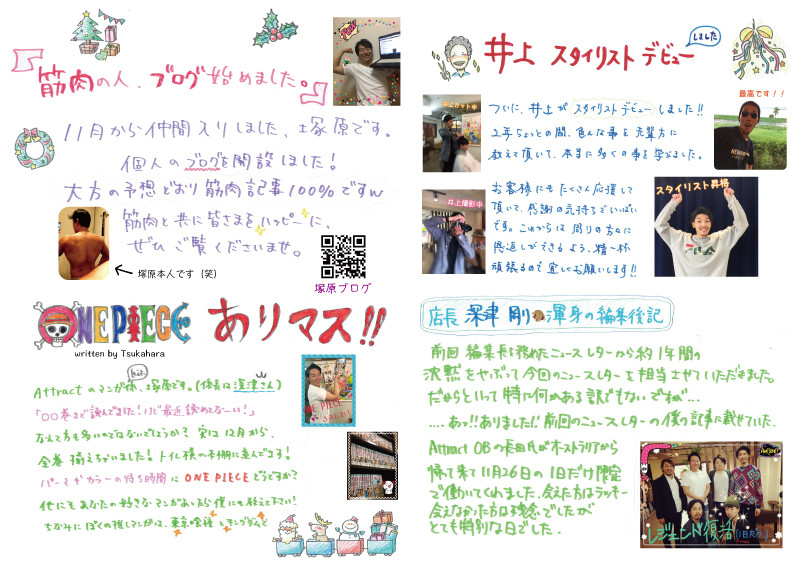 筋肉の人、ブログ始めました。
11月から仲間入りしました、塚原です。
個人のブログを開設しました！
大方の予想どおり筋肉記事100%ですw
筋肉と共に皆さまをハッピーに、
ぜひご覧くださいませ。
塚原本人です（笑）
塚原ブログ
ONE PIECE ありマス!!
written by Tsukahara
Attractのマンガ係、塚原です。(係長は深津さん)
「〇〇巻まで読んでました！けど最近読めてなーい！」
なんて方も多いのではないでしょうか？ 実は12月から、
全巻揃えちゃいました！トイレ横の本棚に並んでます！
パーマやカラーの待ち時間にONE PIECEどうですか？
他にもあなたの好きなマンガあったら僕にも教えて下さい！
ちなみにぼくの推しマンガは、東京喰種とキングダムです
井上 スタイリスト デビュー しました
井上カット中
最高です！！
ついに、井上がスタイリストデビューしました!!
2年ちょっとの間、色んな事を先輩方に
教えて頂いて、本当に多くの事を学びました。
井上撮影中
スタイリスト昇格
お客様にもたくさん応援して
頂いて、感謝の気持ちでいっぱい
です。これからは周りの方々に
恩返しができるよう、精一杯
頑張るので宜しくお願いします!!
店長 深津 剛の渾身の編集後記
前回編集長を務めたニュースレターから約1年間の
沈黙をやぶって今回のニュースレターを担当させていただきました。
だからといって特に何かある訳でもないですが...
....あっ!!ありました!!前回のニュースレターの僕の記事に載せていた、
Attract OBの長田氏がオーストラリアから
帰って来て11月26日の1日だけ限定
で働いてくれました。会えた方はラッキー
会えなかった方は残念でしたが
とても特別な日でした。
レジェンド復活